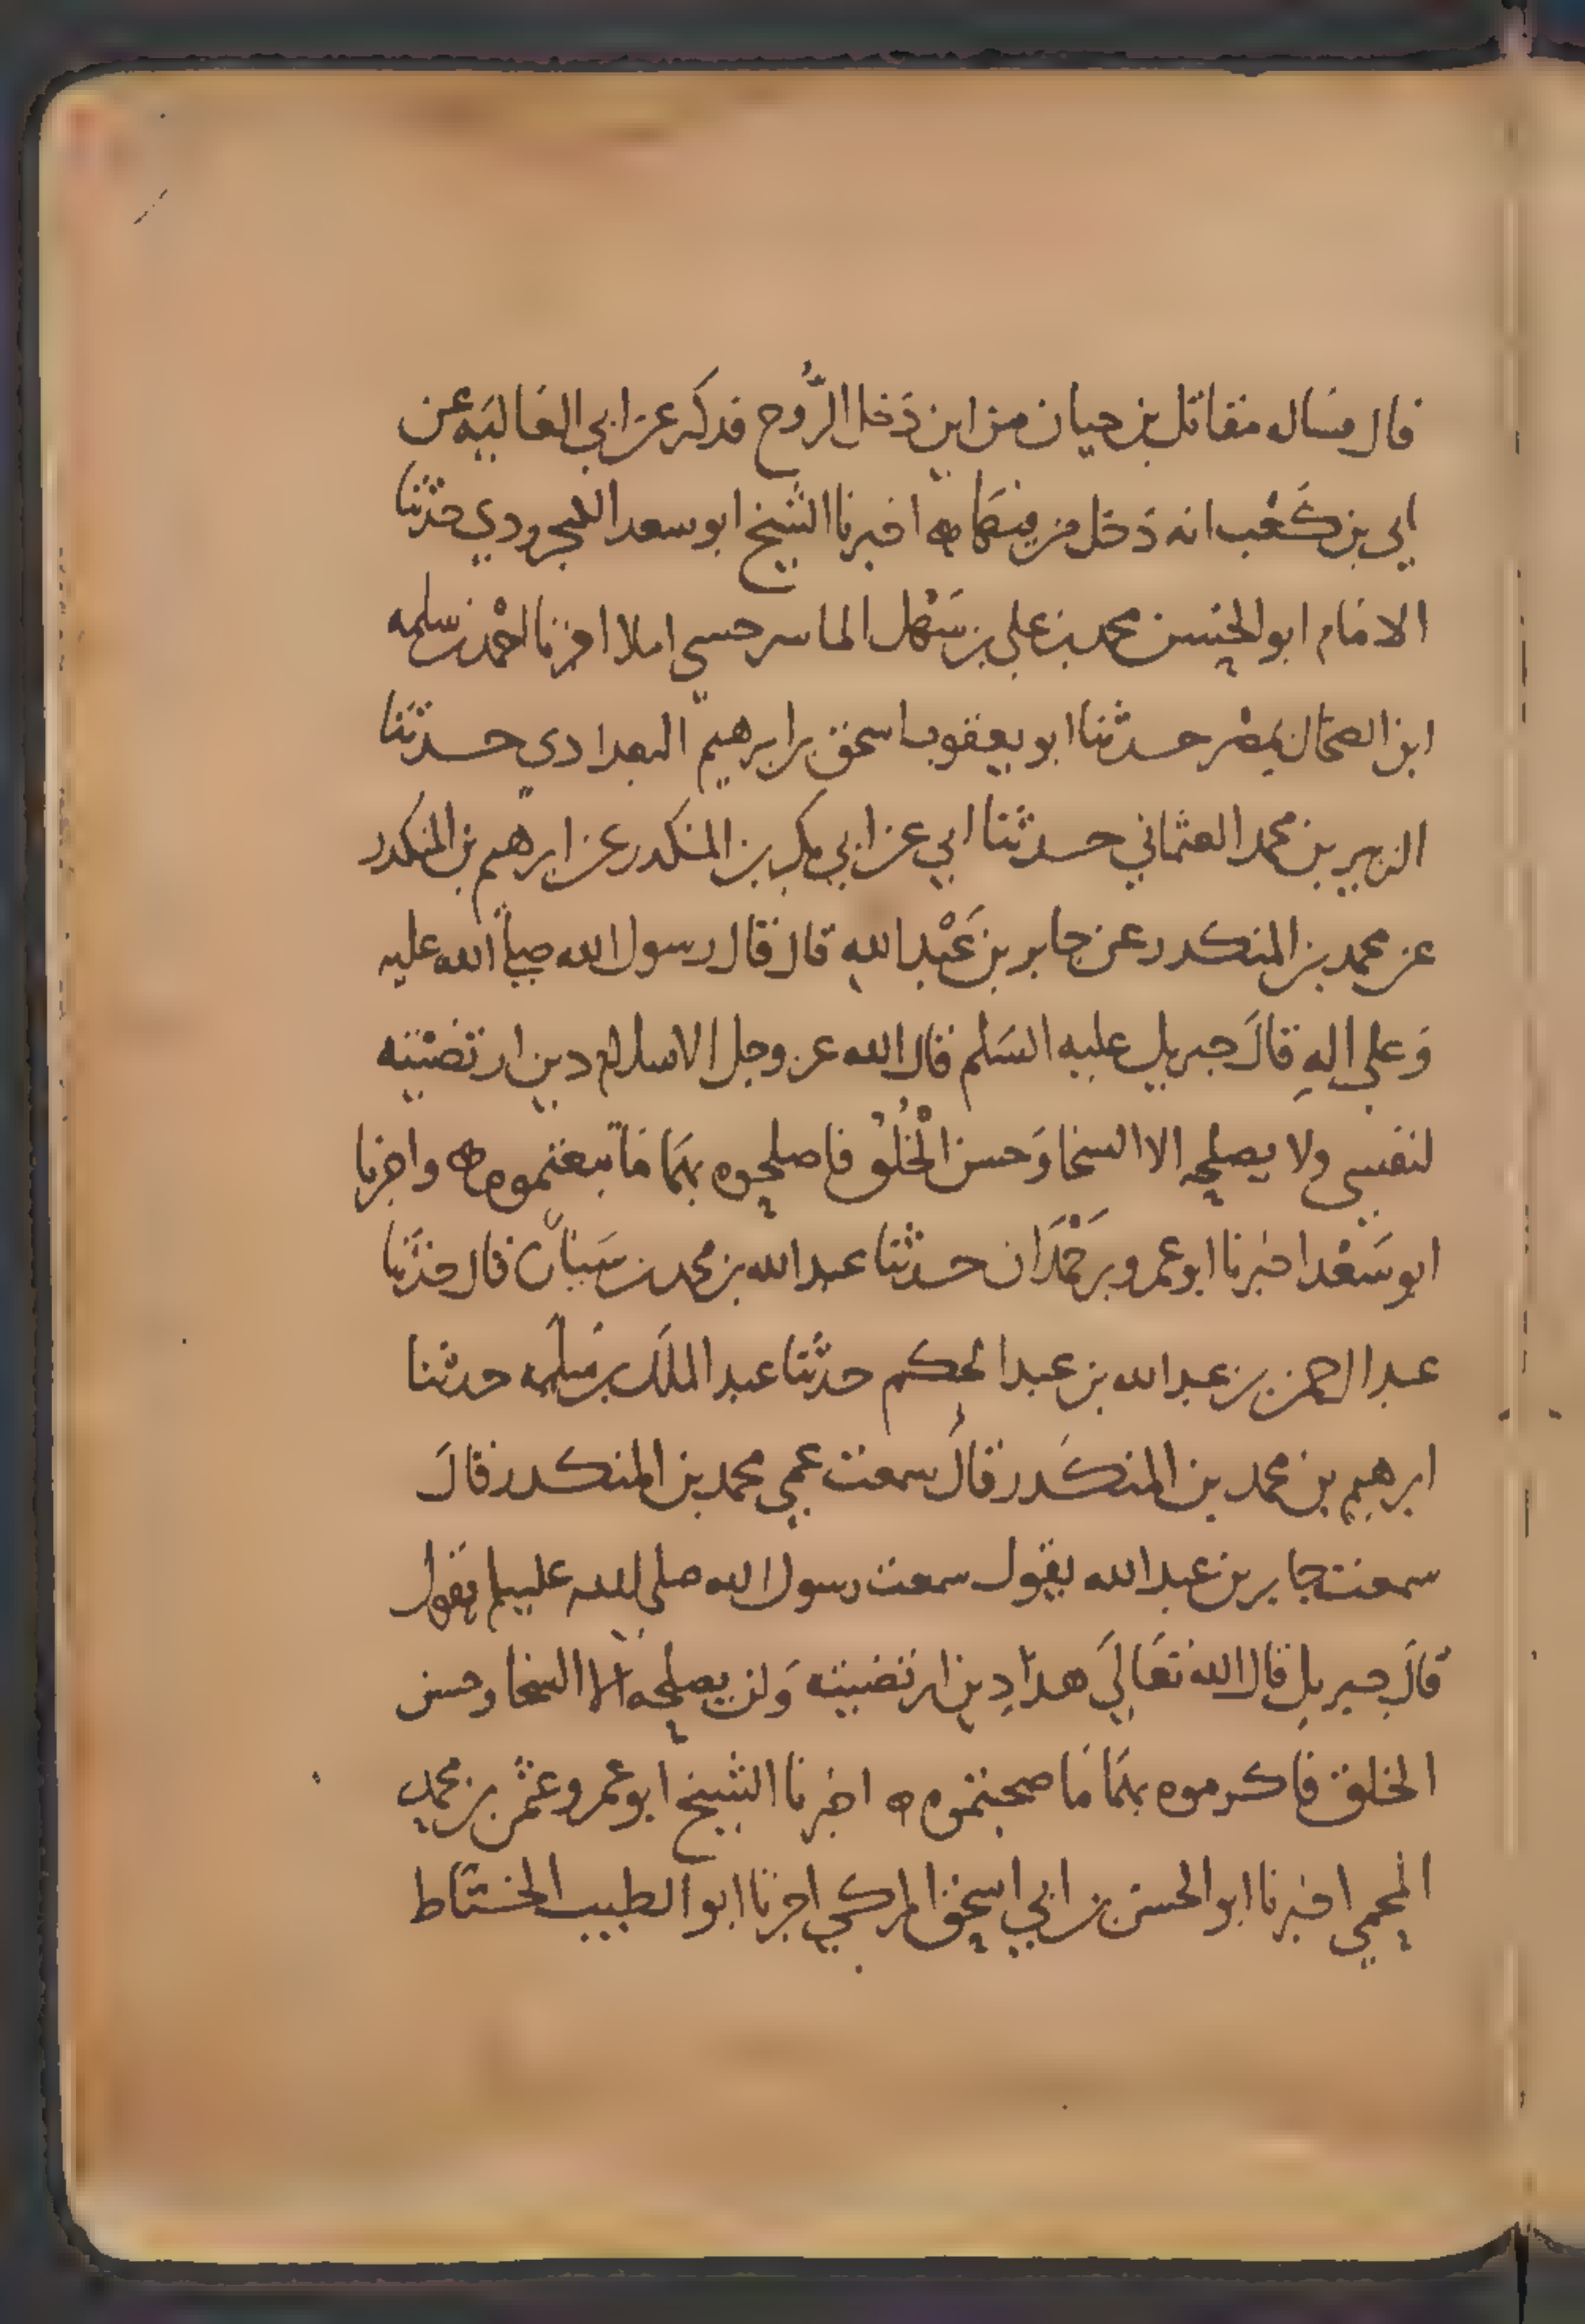 قال فساله مقاتل بن حيان من اين دَخل الرُّوح فذكر عن ابي العَاليَه عن
ابي بن كَعْب انه دَخل من فيهَا ه اخبرنا الشيخ ابو سعد الكنجرودي حَدثنا
الامَام ابو الحَسن محمد بن علي بن سَهْل الماسرجسي املا اخبرنا احْمد بن سلمه
ابن الضحاك بمصْر حدثنا ابو يعقوب اسحق بن ابرهيم البغدادي حدثنا
الزبير بن محمد العثماني حدثنا ابي عن ابي بكر بن المنكدر عن ابرهيم بن المنكدر
عن محمد بن المنكدر عن جابر بن عَبْد اللهِ قال قال رسول الله صلى الله عليه
وَعلى الهِ قالَ جبريل عليه السَلم قال الله عز وجل الاسلام دين ارتضيته
لنفسي ولا يصلحه الا السخا وَحسن الْخُلُق فاصلحوه بهمَا مَا تبعتموه ه واخبرنا
ابو سَعْد اخبرنا ابو عمرو بن حَمْدَان حدثنا عبد الله بن محمد بن سَيَّار قال حَدثنا
عبد الرحمن بن عبد الله بن عبد الحكم حدثنا عبد الملك بن مَسلَمه حدثنا
ابرهيم بن محمد بن المنكَدر قالَ سمعت عمي محمد بن المنكدر قالَ
سمعت جابر بن عبد الله يقول سمعت رسول الله صلى الله عليه وسلم يقول
قالَ جبريل قال الله تعَالَى هذا دِين ارتضيته وَلن يصلحه الا السخا وحسن
الخلق فاكرموه بهمَا مَا صحبتموه ه اخبرنا الشيخ ابو عمرو عثمن بن محمد
المحمي اخبرنا ابو الحسن بن ابي اسحق المزكي اخبرنا ابو الطيب الخيَّاط